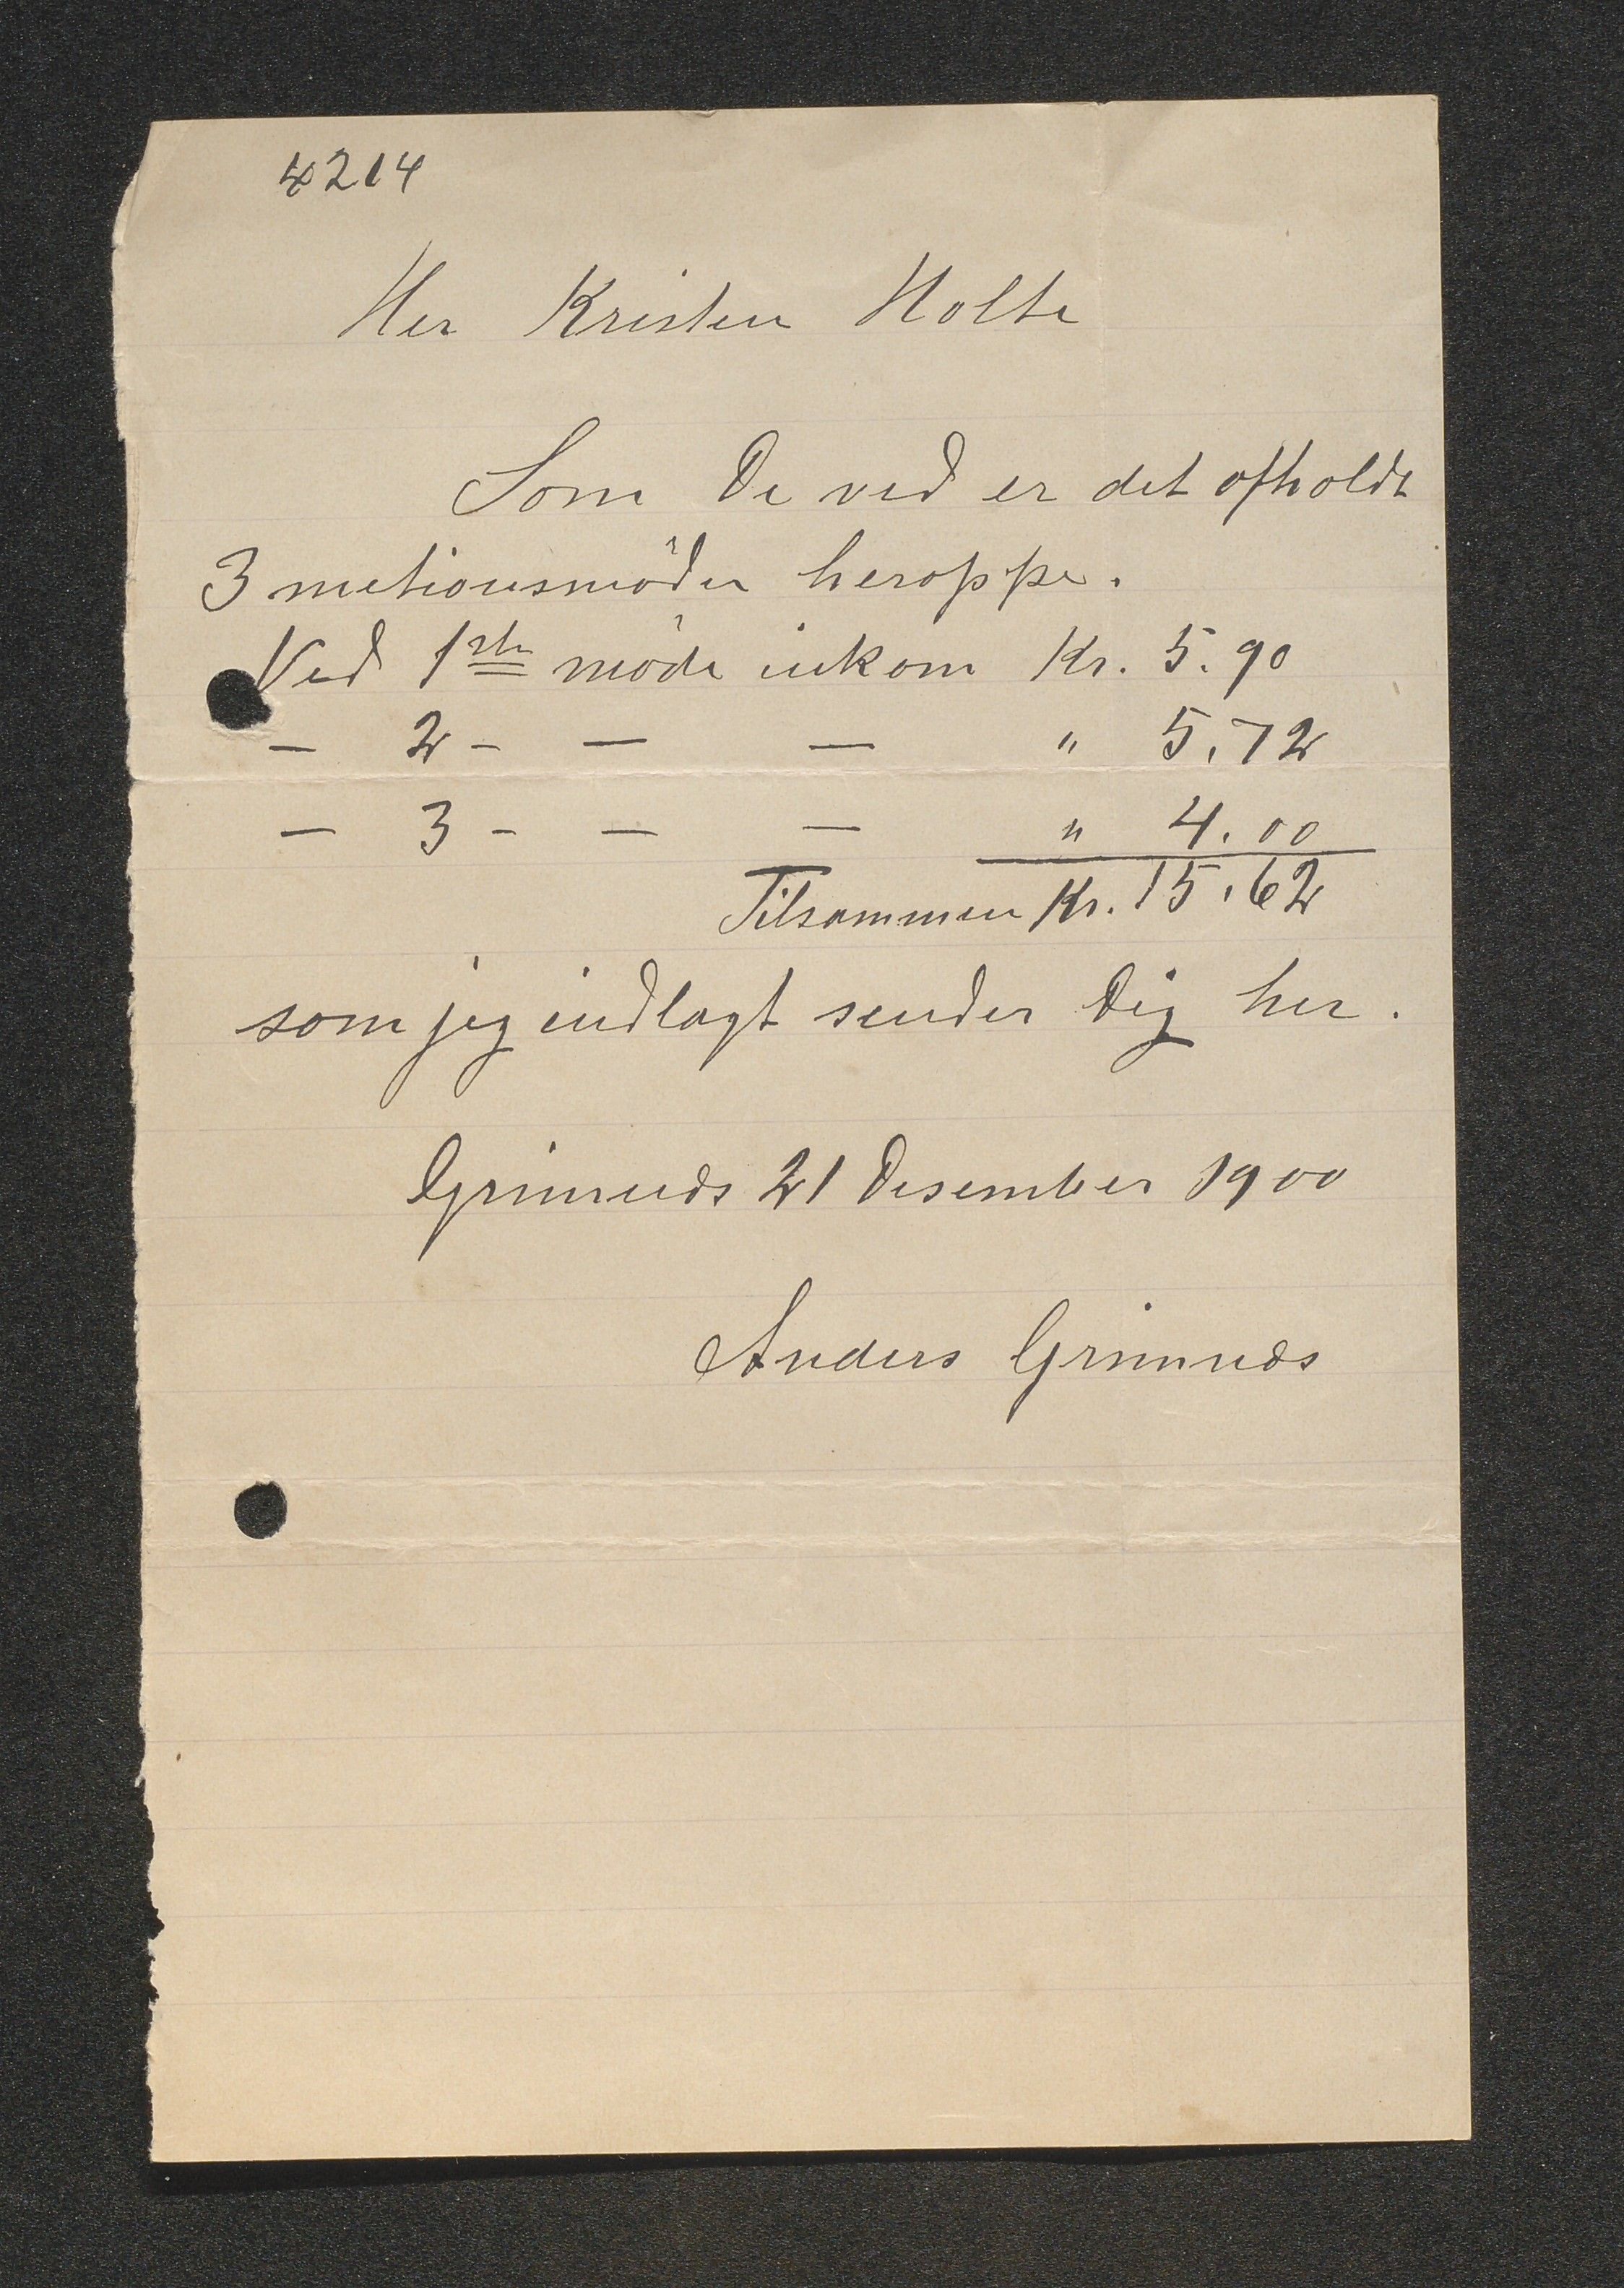 4214
Her Kristen Holte
Som De ved er det afholdt
3 metionsmöder heroppe.
Ved 1ste möde inkom Kr. 5.90
– 2 – – – " 5.72
– 3 – – – " 4.00
Tilsammen Kr. 15.62
som jeg indlagt sender Dig her.
Grimruds 21 Desember 1900
Anders Grimruds